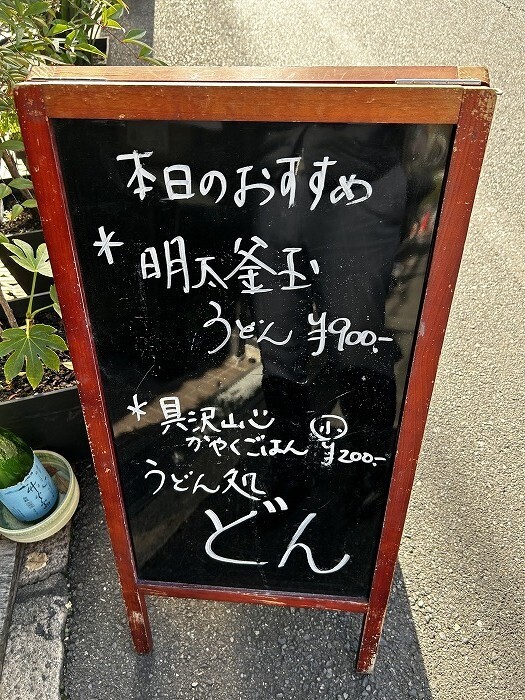 本日のおすすめ
*明太釜玉
うどん ¥900.-
*具沢山 小
かやくごはん ¥200.-
うどん処
どん